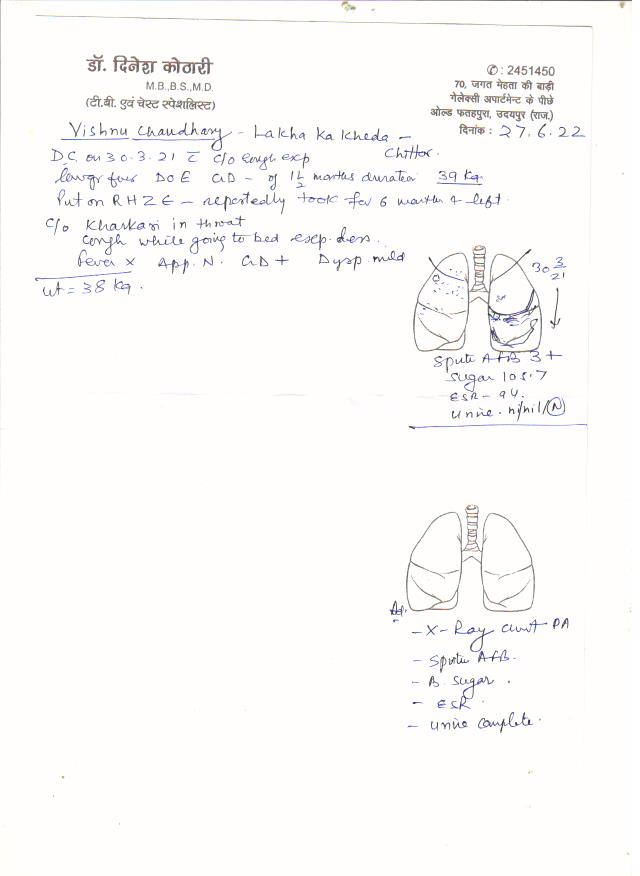 डॉ. दिनेश कोठारी
M.B.,B.S.,M.D.
(टी.बी. एवं चेस्ट स्पेशलिस्ट)
✆ : 2451450
70, जगत मेहता की बाड़ी
गेलेक्सी अपार्टमेन्ट के पीछे
ओल्ड फतहपुरा, उदयपुर (राज.)
दिनांक : 27.6.22
Vishnu Chaudhary - Lakha Ka Kheda -
Chittor.
DC on 30.3.21 c̄ c/o cough exp
fever DOE GD - of 1½ months duration 39 Kg.
Put on RHZE - reportedly took for 6 months & left.
c/o Kharkari in throat
cough while going to bed exp. less.
fever × App. N. GD + Dysp. mild
wt = 38 kg.
30 3/21
Sputu AFB 3+
Sugar 105.7
ESR - 94.
Urine - n/nil/(N)
Ad.
- X-Ray chest PA
- Sputu AFB.
- B. Sugar.
- ESR.
- Urine complete.